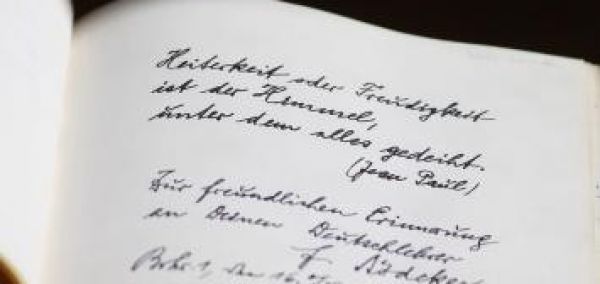 Heiterkeit oder Freudigkeit
ist der Himmel,
unter dem alles gedeiht.
(Jean Paul)
Zur freundlichen Erinnerung
an Deinen Deutschlehrer
den